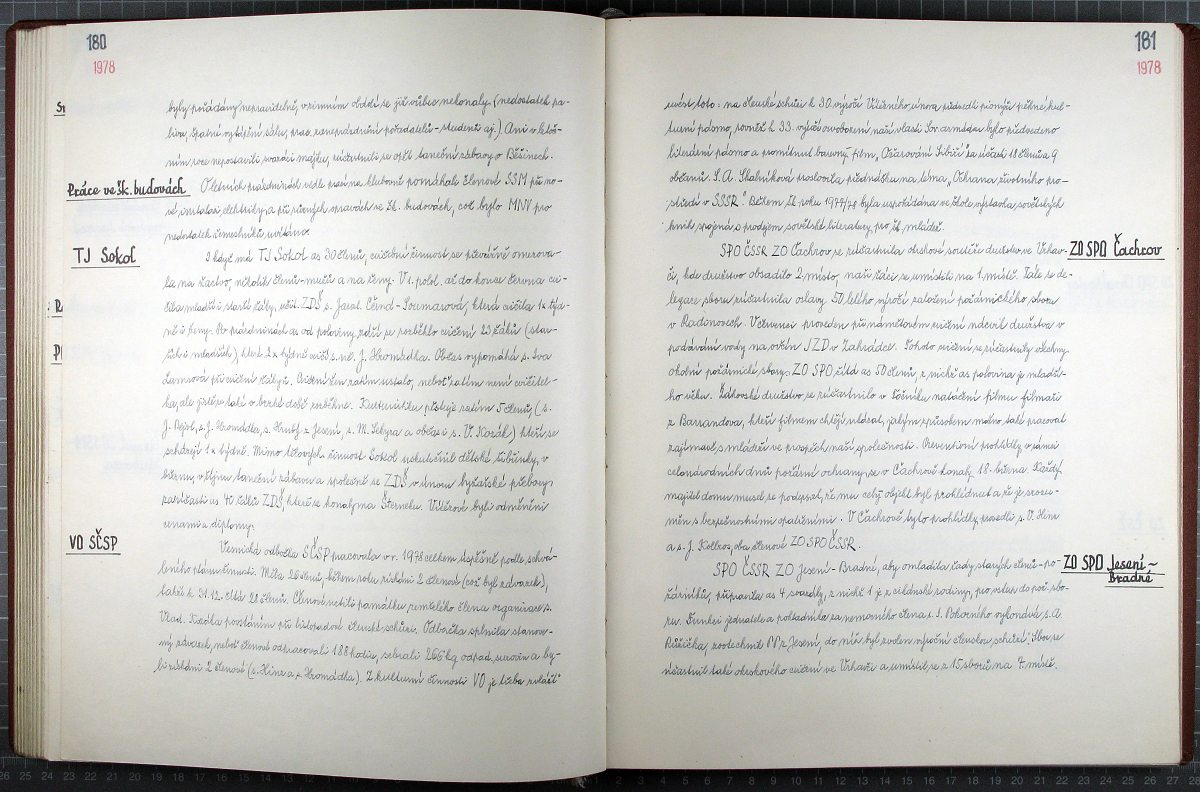 180
1978
byly pořádány nepravidelně, v zimním období se již vůbec nekonaly (nedostatek pa-
liva, špatné vytápění sálu, praz. zaneprázdnění pořadatelů - studentů aj.) Ani v letoš-
ním roce nepostavili svazáci májku, zúčastnili se opět taneční zábavy v Běšinech.
Práce ve šk. budovách
O letních prázdninách vedle prací na klubovně pomáhali členové SSM při no-
vé instalaci elektriky a při různých opravách ve šk. budovách, což bylo MNV pro
nedostatek řemeslníků uvítáno.
TJ Sokol
I když má TJ Sokol as 30 členů, cvičební činnost se převážně omezova-
la na žactvo, několik členů-mužů a na ženy. V 1. polol. až do konce června cvi-
čila mladší i starší žáky, učit. ZDŠ s. Jarosl. Černá - Soumarová, která cvičila 1x týd-
ně i ženy. Po prázdninách a od poloviny září se rozběhlo cvičení 23 žáků (star-
ších i mladších) které 2x týdně cvičí s. uč. J. Hromádka. Občas vypomáhá s. Iva
Lamsová při cvičení žákyň. Cvičení žen zatím ustalo, neboť zatím není cvičitel-
ka, ale jistě se také v brzké době rozběhne. Kulturistiku pěstuje zatím 5 členů, (s.
J. Rejsl, s. J. Hromádka, s. Hrubý z Jesení, s. M. Sekyra a občas i s. V. Kozák) kteří se
scházejí 1x týdně. Mimo tělových. činnost Sokol uskutečnil dětské šibřinky, v
březnu, v říjnu taneční zábavu a společně se ZDŠ v únoru lyžařské přebory
za účasti as 40 žáků ZDŠ, které se konaly na Šterneku. Vítězové byli odměněni
cenami a diplomy.
VO SČSP
Vesnická odbočka SČSP pracovala v r. 1978 celkem úspěšně podle schvá-
leného plánu činnosti. Měla 26 členů, během roku získáni 2 členové (což byl závazek),
takže k 31.12. čítá 28 členů. Členové uctili památku zemřelého člena organizace s.
Vlad. Kadlka povstáním při listopadové členské schůzi. Odbočka splnila stanove-
ný závazek, neboť členové odpracovali 188 hodin, sebrali 266 kg odpad. surovin a by-
li získáni 2 členové (s. Hřina a s. Hromádka). Z kulturní činnosti VO je třeba zvlášť
181
1978
uvést toto: na členské schůzi k 30. výročí Vítězného února předvedli pionýři pěkné kul-
turní pásmo, rovněž k 33. výročí osvobození naší vlasti Sov. armádou bylo předvedeno
literární pásmo a promítnut barevný film „Očarování Sibiří“ za účasti 18 členů a 9
občanů. S. A. Skalníková proslovila přednášku na téma „Ochrana životního pro-
středí v SSSR“. Během šk. roku 1977/78 byla uspořádána ve škole výstavka sovětských
knih spojená s prodejem sovětské literatury pro šk. mládež.
ZO SPO Čachrov
SPO ČSSR ZO Čachrov se zúčastnila okrskové soutěže družstev ve Vrhav-
či, kde družstvo obsadilo 2. místo, naši žáci se umístili na 1. místě. Dále se de-
legace sboru zúčastnila oslavy 50. letého výročí založení požárnického sboru
v Radinovech. V červenci proveden při námětovém cvičení nácvik družstva v
podávání vody na ovčín JZD v Zahrádce. Tohoto cvičení se zúčastnily všechny
okolní požárnické sbory. ZO SPO čítá as 50 členů, z nichž as polovina je mladší-
ho věku. Žákovské družstvo se zúčastnilo v Točníku natáčení filmu filmaři
z Barrandova, kteří filmem chtějí ukázat, jakým způsobem možno také pracovat
zajímavě s mládeží ve prospěch naší společnosti. Preventivní prohlídky v rámci
celonárodních dnů požární ochrany se v Čachrově konaly 18. března. Každý
majitel domu musel se podepsat, že mu celý objekt byl prohlédnut a že je srozu-
měn s bezpečnostními opatřeními. V Čachrově tyto prohlídky provedli s. V. Hřina
a s. J. Kollros, oba členové ZO SPO ČSSR.
ZO SPO Jesení ~
Bradné
SPO ČSSR ZO Jesení - Bradné, aby omladila řady starých členů - po-
žárníků, připravila as 4 svazáky, z nichž 1 je z cikánské rodiny, pro vstup do pož. sbo-
ru. Funkci jednatele a pokladníka za nemocného člena s. J. Pokorného vykonává s. A.
Růžička, zootechnik PP z Jesení, do níž byl zvolen výroční členskou schůzí. Sbor se
zúčastnil také okrskového cvičení ve Vrhavči a umístil se z 15 sborů na 7. místě.